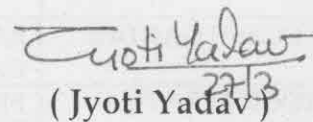 Jyoti Yadav
27/3
( Jyoti Yadav )